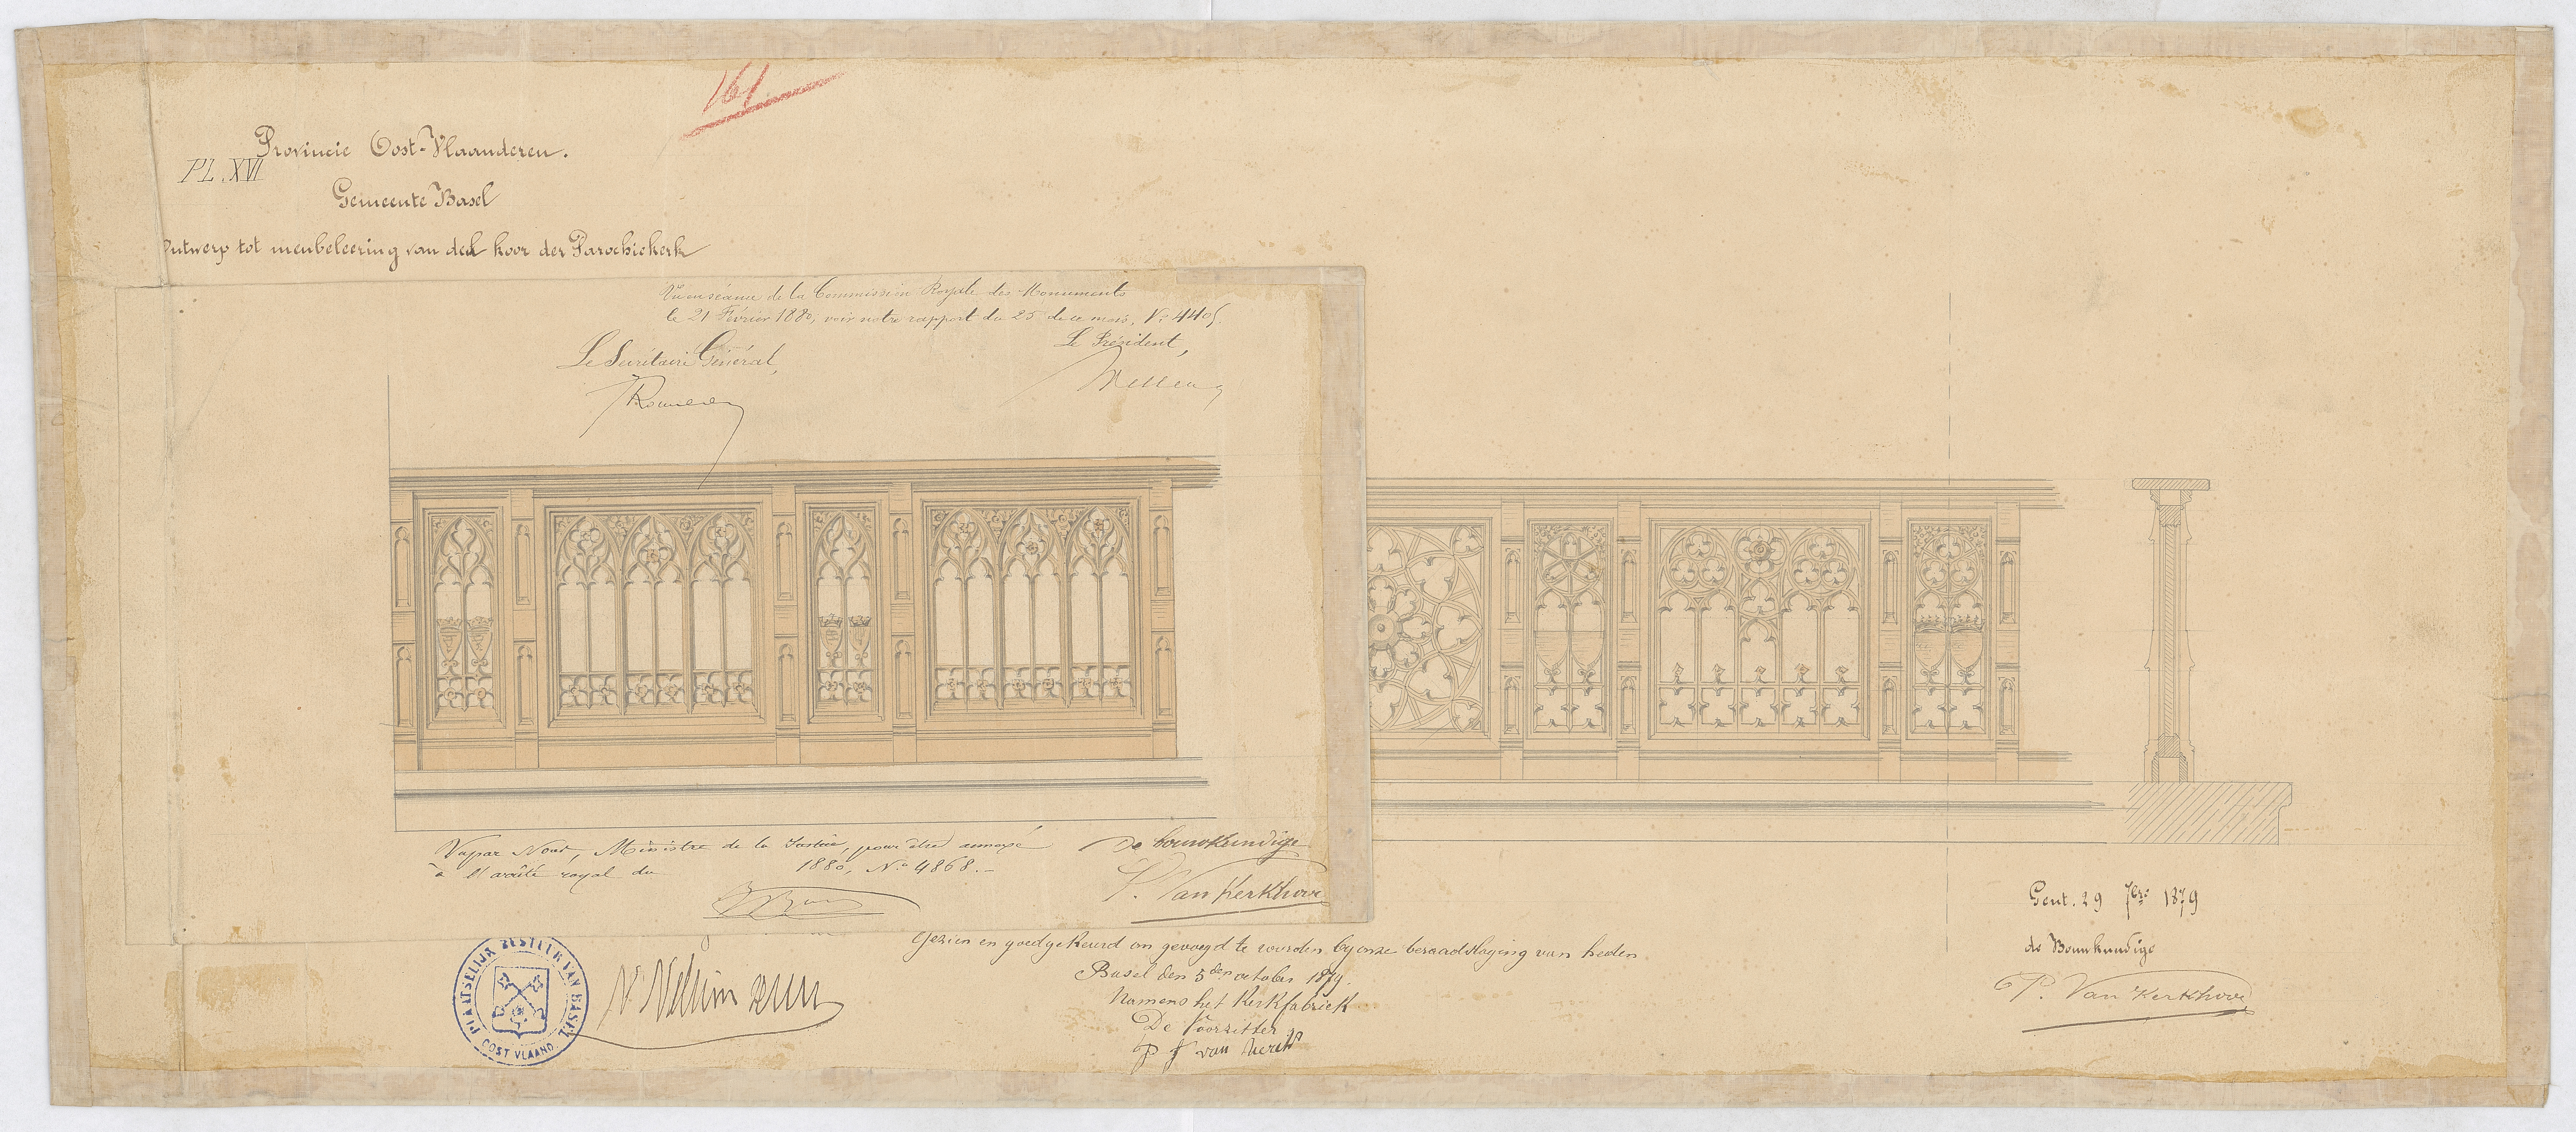 161
Provincie Oost-Vlaanderen.
PL. XVI
Gemeente Basel
Ontwerp tot meubeleering van den koor der Parochiekerk
Vu en séance de la Commission Royale des Monuments
le 21 Février 1880, voir notre rapport du 25 de ce mois, No 4405.
Le Président,
Le Secrétaire Général,
Rousseau
Wellens
Vu par Nous, Ministre de la Justice, pour être annexé
à l'arrêté royal du 1880, No 4868.-
De bouwkundige
P. Van Kerkhove
Gezien en goedgekeurd om gevoegd te worden by onze beraadslaging van heden
Basel den 5den october 1879.
Namens het Kerkfabriek
De Voorzitter
PLAATSELIJK BESTUUR VAN BASEL
OOST VLAAND.
Gent. 29 7bre 1879
de Bouwkundige
P. Van Kerkhove